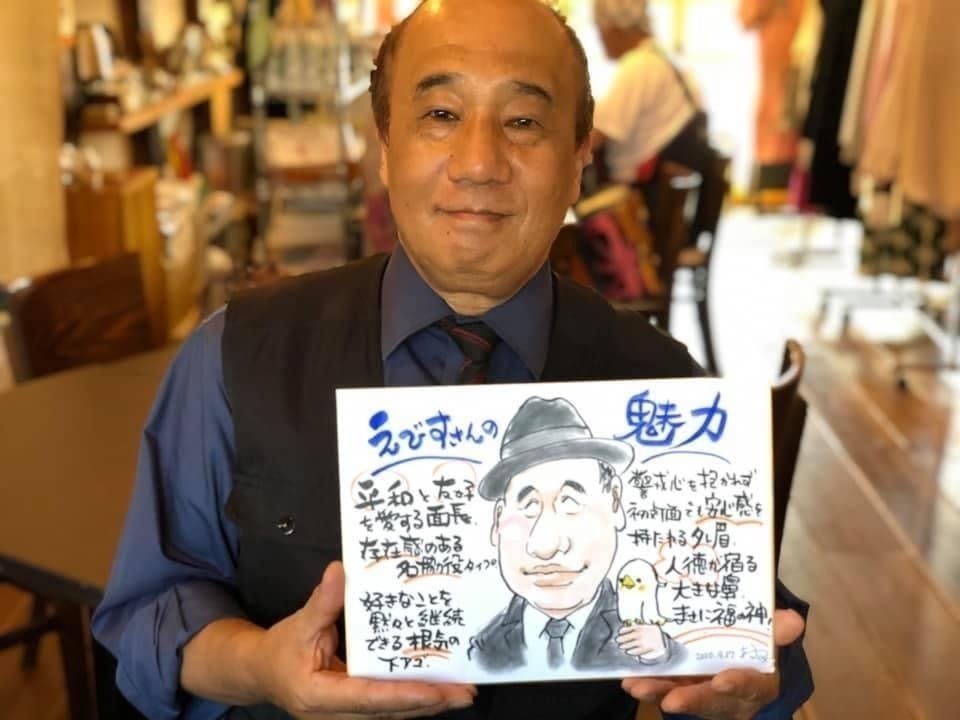 えびすさんの魅力
平和と友好
を愛する面長、
存在感のある
名脇役タイプの
好きなことを
黙々と継続
できる根気の
下アゴ、
警戒心を抱かれず
初対面でも安心感を
持たれる夕レ眉、
人徳が宿る
大きな鼻、
まさに福の神!
2020.9.17